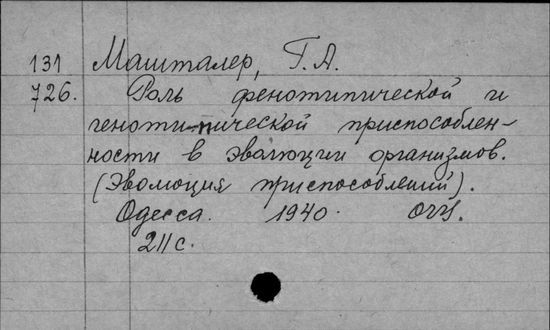 131 Машталер, Г.А.
726. Роль фенотипической и
генотипической приспособлен-
ности в эволюции организмов.
(Эволюция приспособлений).
Одесса. 1940. ОГУ.
211 с.